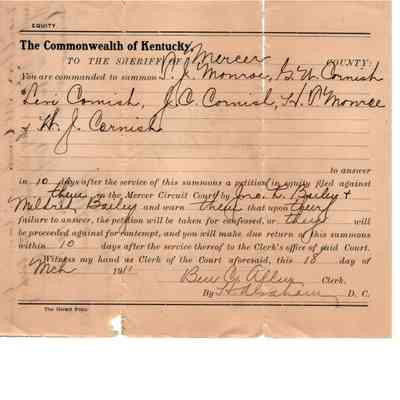 EQUITY
The Commonwealth of Kentucky,
TO THE SHERIFF OF Mercer COUNTY:
You are commanded to summon T. J. Monroe, G. W. Cornish
Levi Cornish, J. C. Cornish, H. P. Monroe
& H. J. Cornish
to answer
in 10 days after the service of this summons a petition in equity filed against
them in the Mercer Circuit Court by Jno. L. Bailey &
Mildred Bailey and warn them that upon their
failure to answer, the petition will be taken for confessed, or they will
be proceeded against for contempt, and you will make due return of this summons
within 10 days after the service thereof to the Clerk's office of said Court.
Witness my hand as Clerk of the Court aforesaid, this 18 day of
Mch 1911
Ben C. Allin Clerk.
By D. C.
The Herald Print